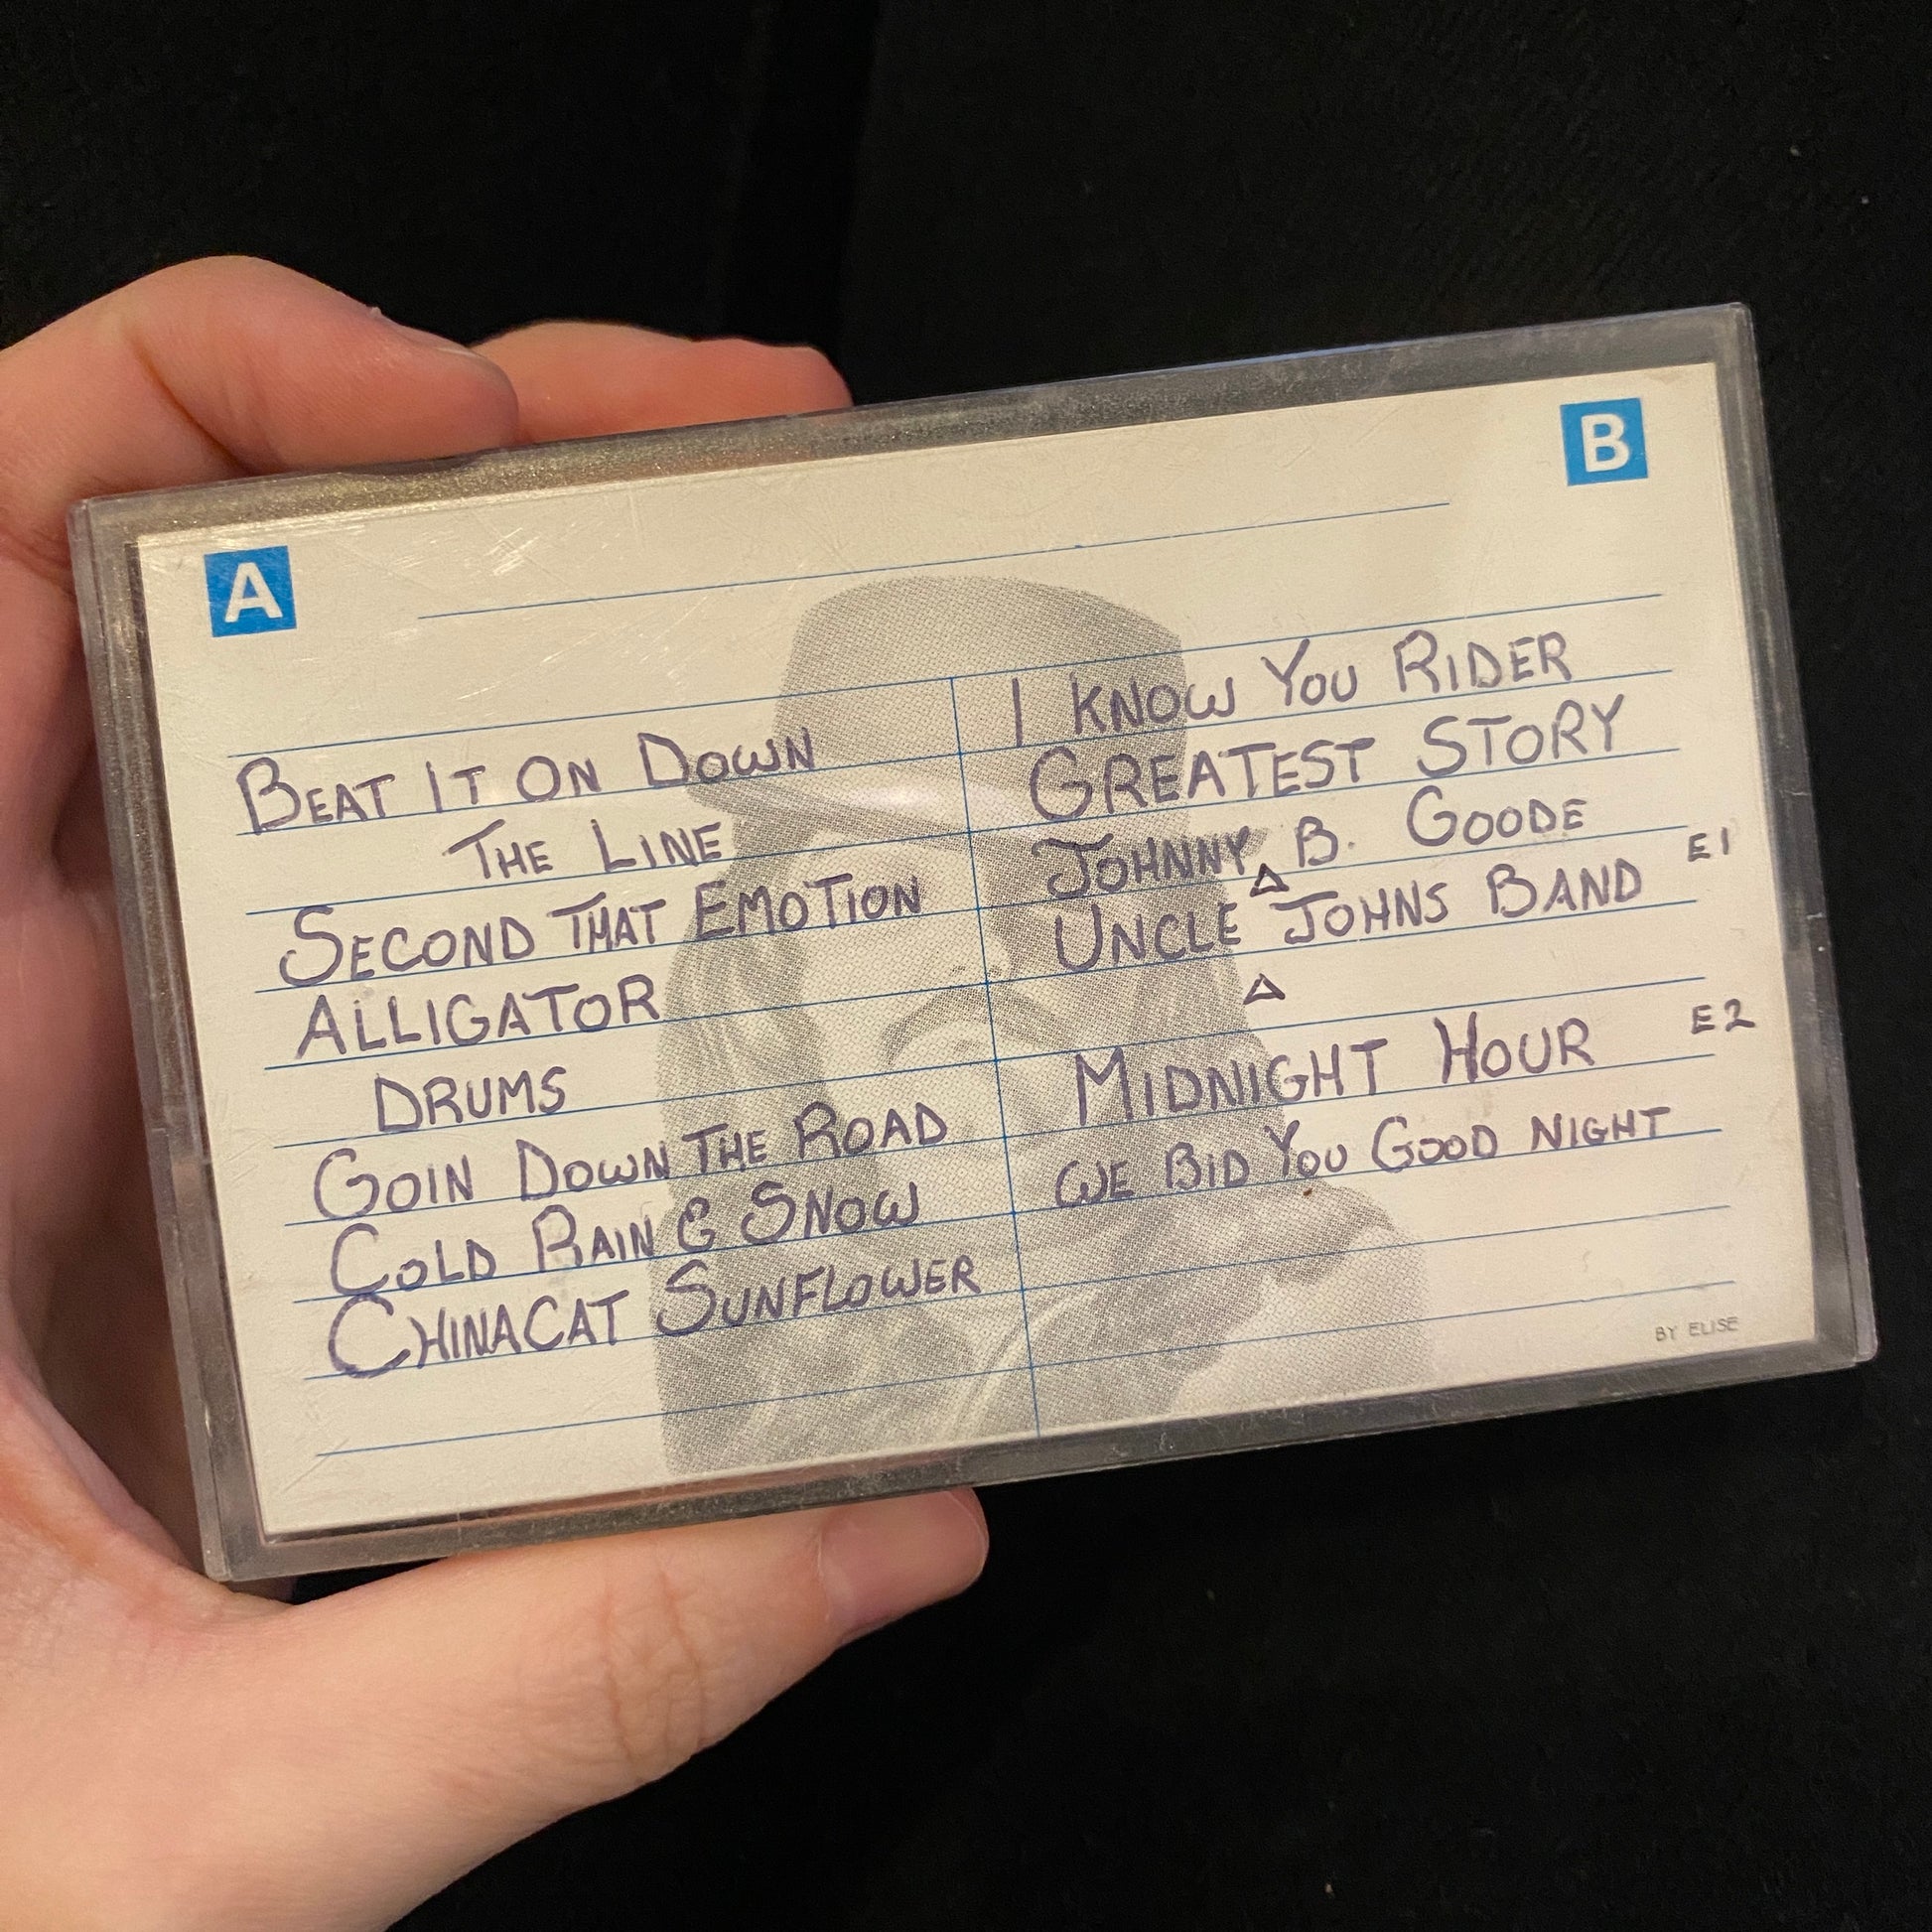 A
BEAT IT ON DOWN
THE LINE
SECOND THAT EMOTION
ALLIGATOR
DRUMS
GOIN DOWN THE ROAD
COLD RAIN & SNOW
CHINACAT SUNFLOWER
B
I KNOW YOU RIDER
GREATEST STORY
JOHNNY B. GOODE
UNCLE JOHNS BAND E1
MIDNIGHT HOUR E2
WE BID YOU GOOD NIGHT
BY ELISE